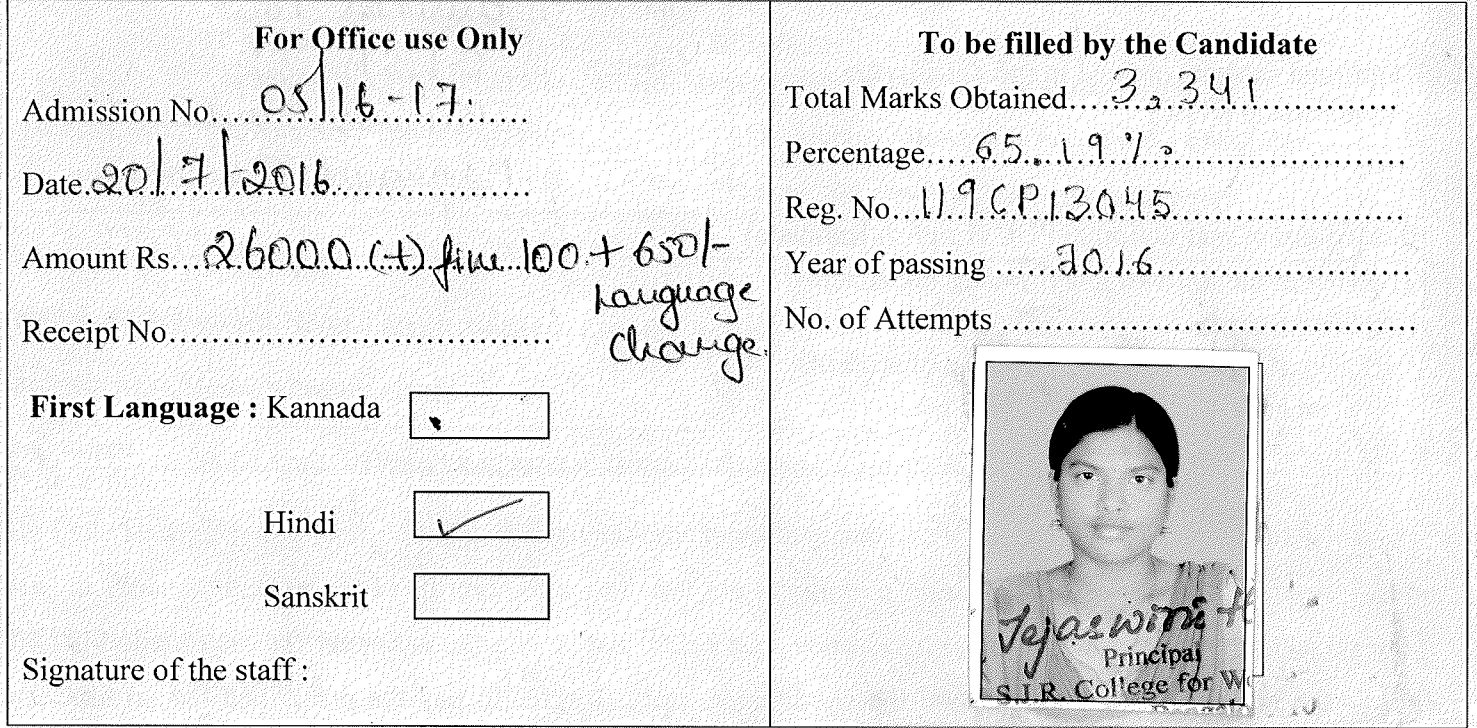 For Office use Only
Admission No....05/16-17.
Date.20/7/2016
Amount Rs...26000 (+) fine 100 + 650/-
Language
Change.
Receipt No.
First Language : Kannada
Hindi ✓
Sanskrit
Signature of the staff :
To be filled by the Candidate
Total Marks Obtained....3.341
Percentage.....65.19%
Reg. No...119CP13045
Year of passing ......2016
No. of Attempts
Tejaswini H
Principal
S.J.R. College for